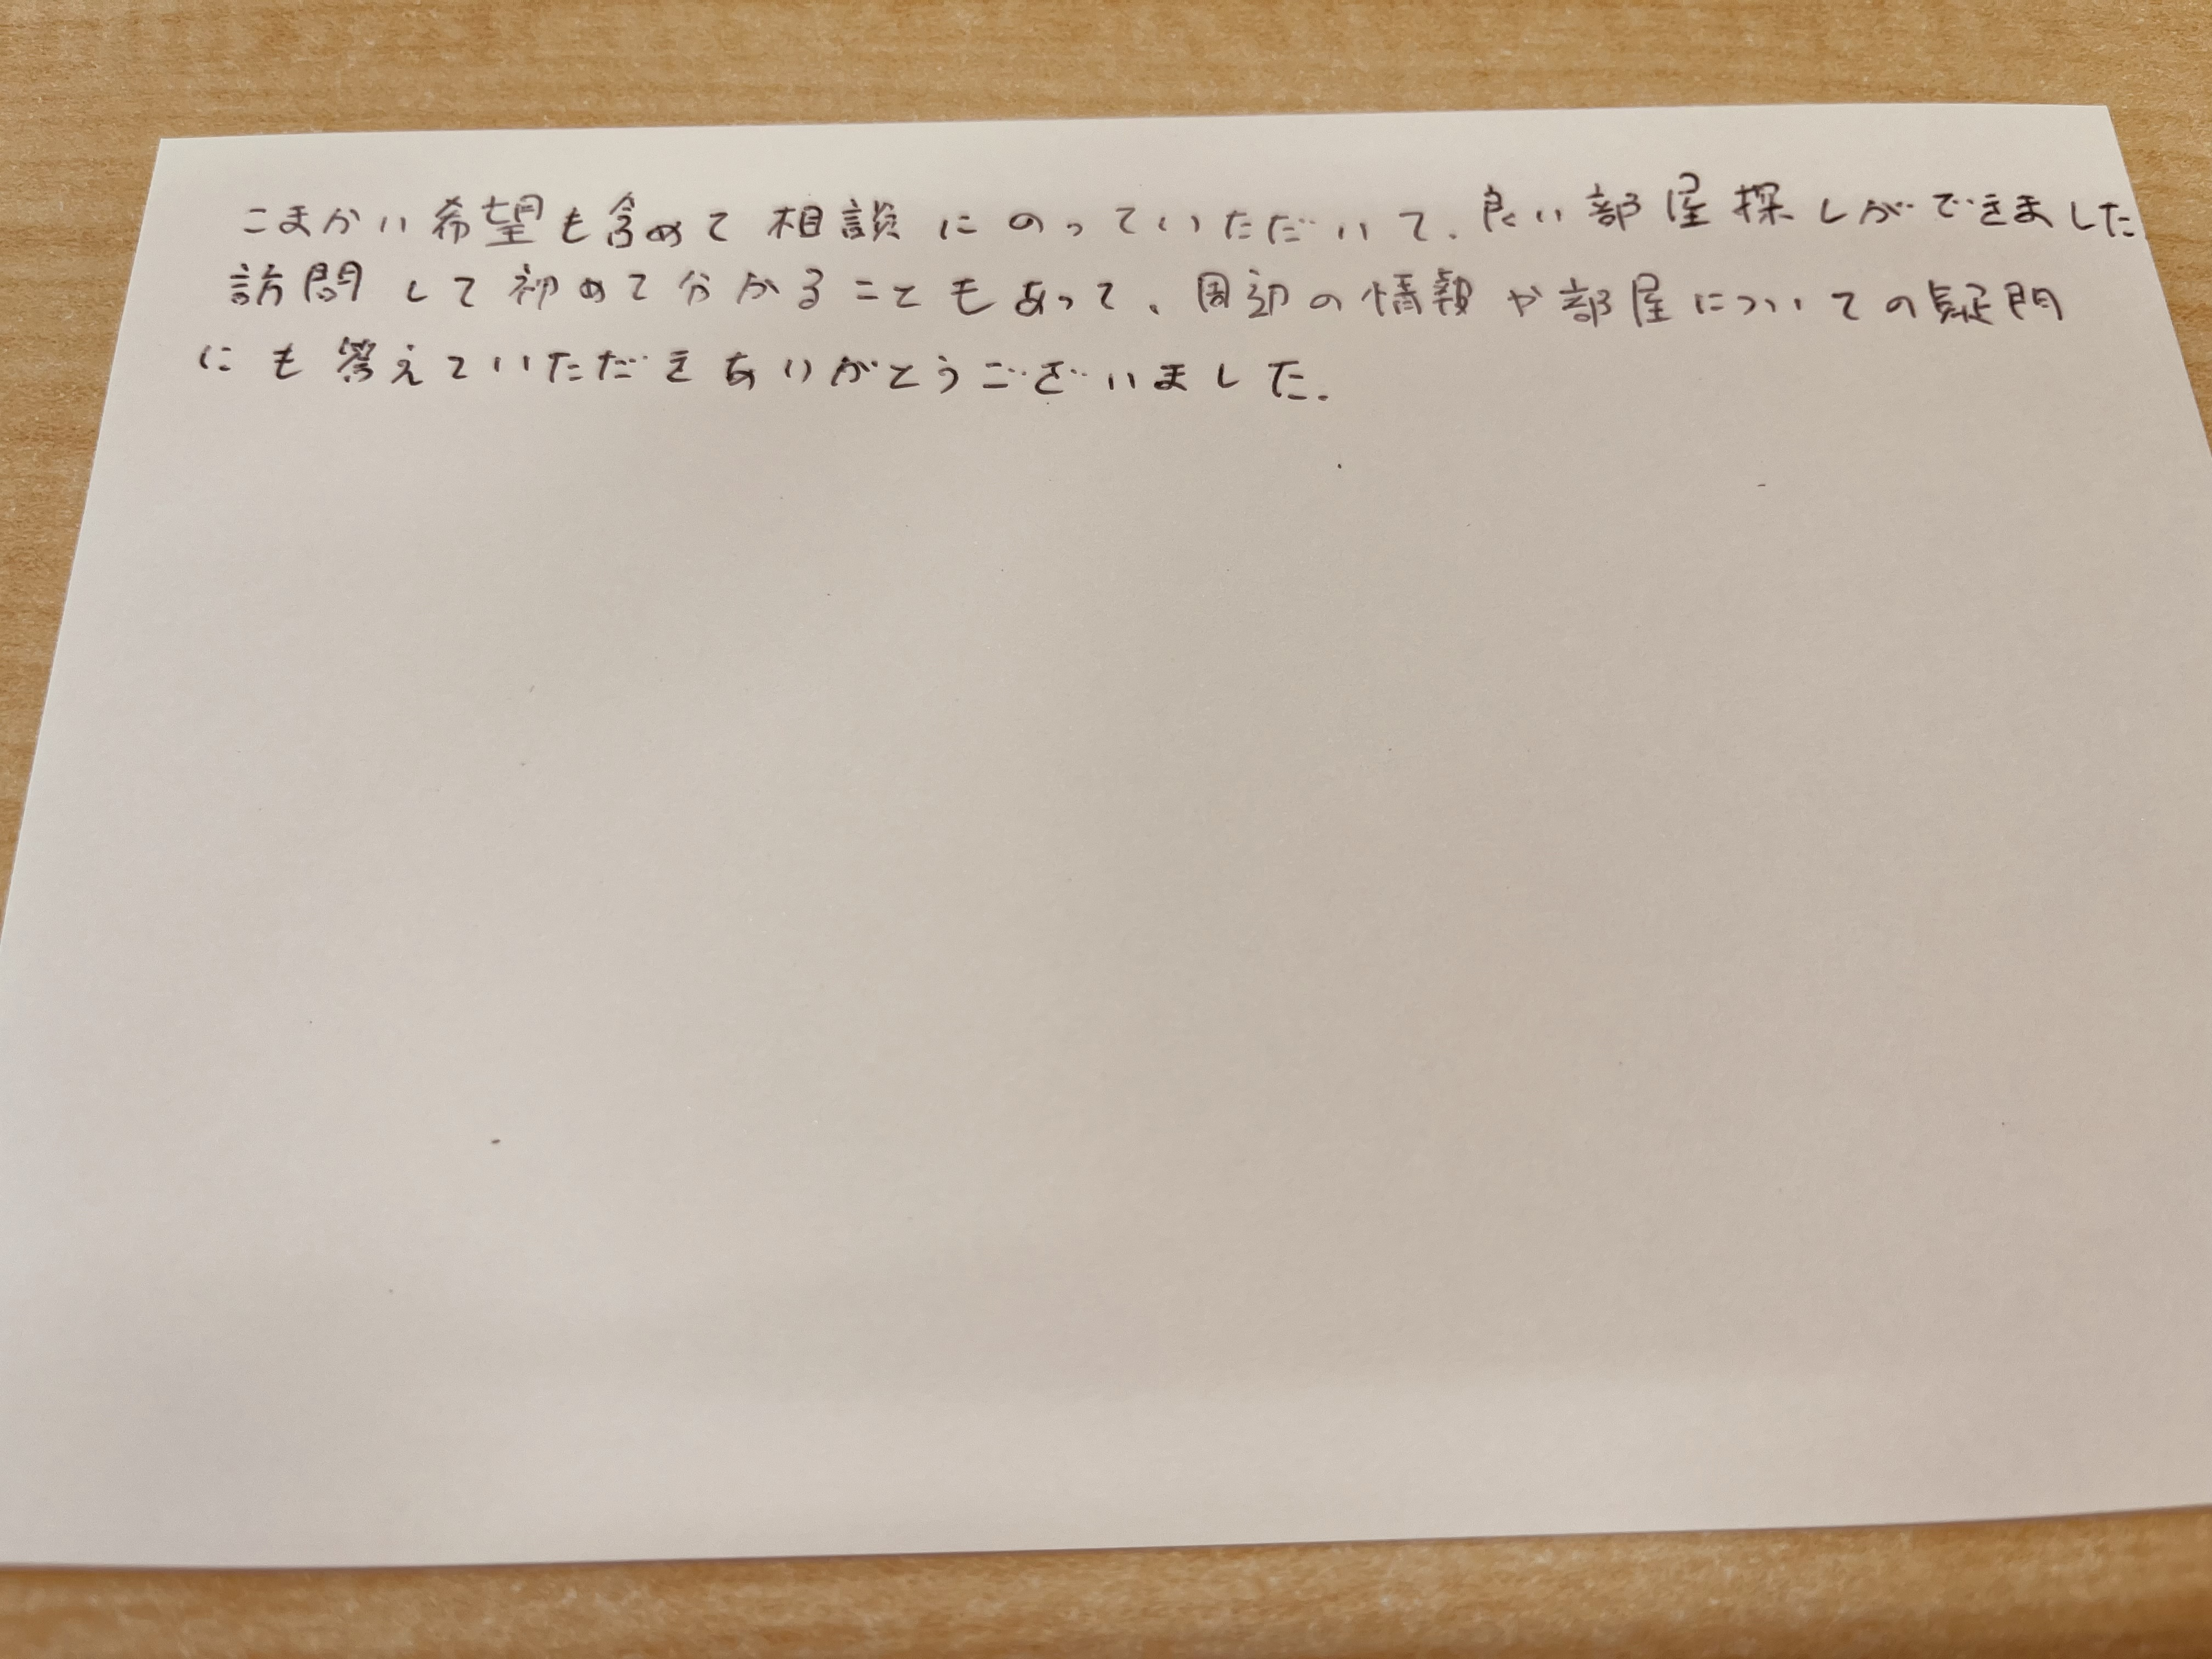 こまかい希望も含めて相談にのっていただいて、良い部屋探しができました.
訪問して初めて分かることもあって、周辺の情報や部屋についての疑問
にも答えていただきありがとうございました.